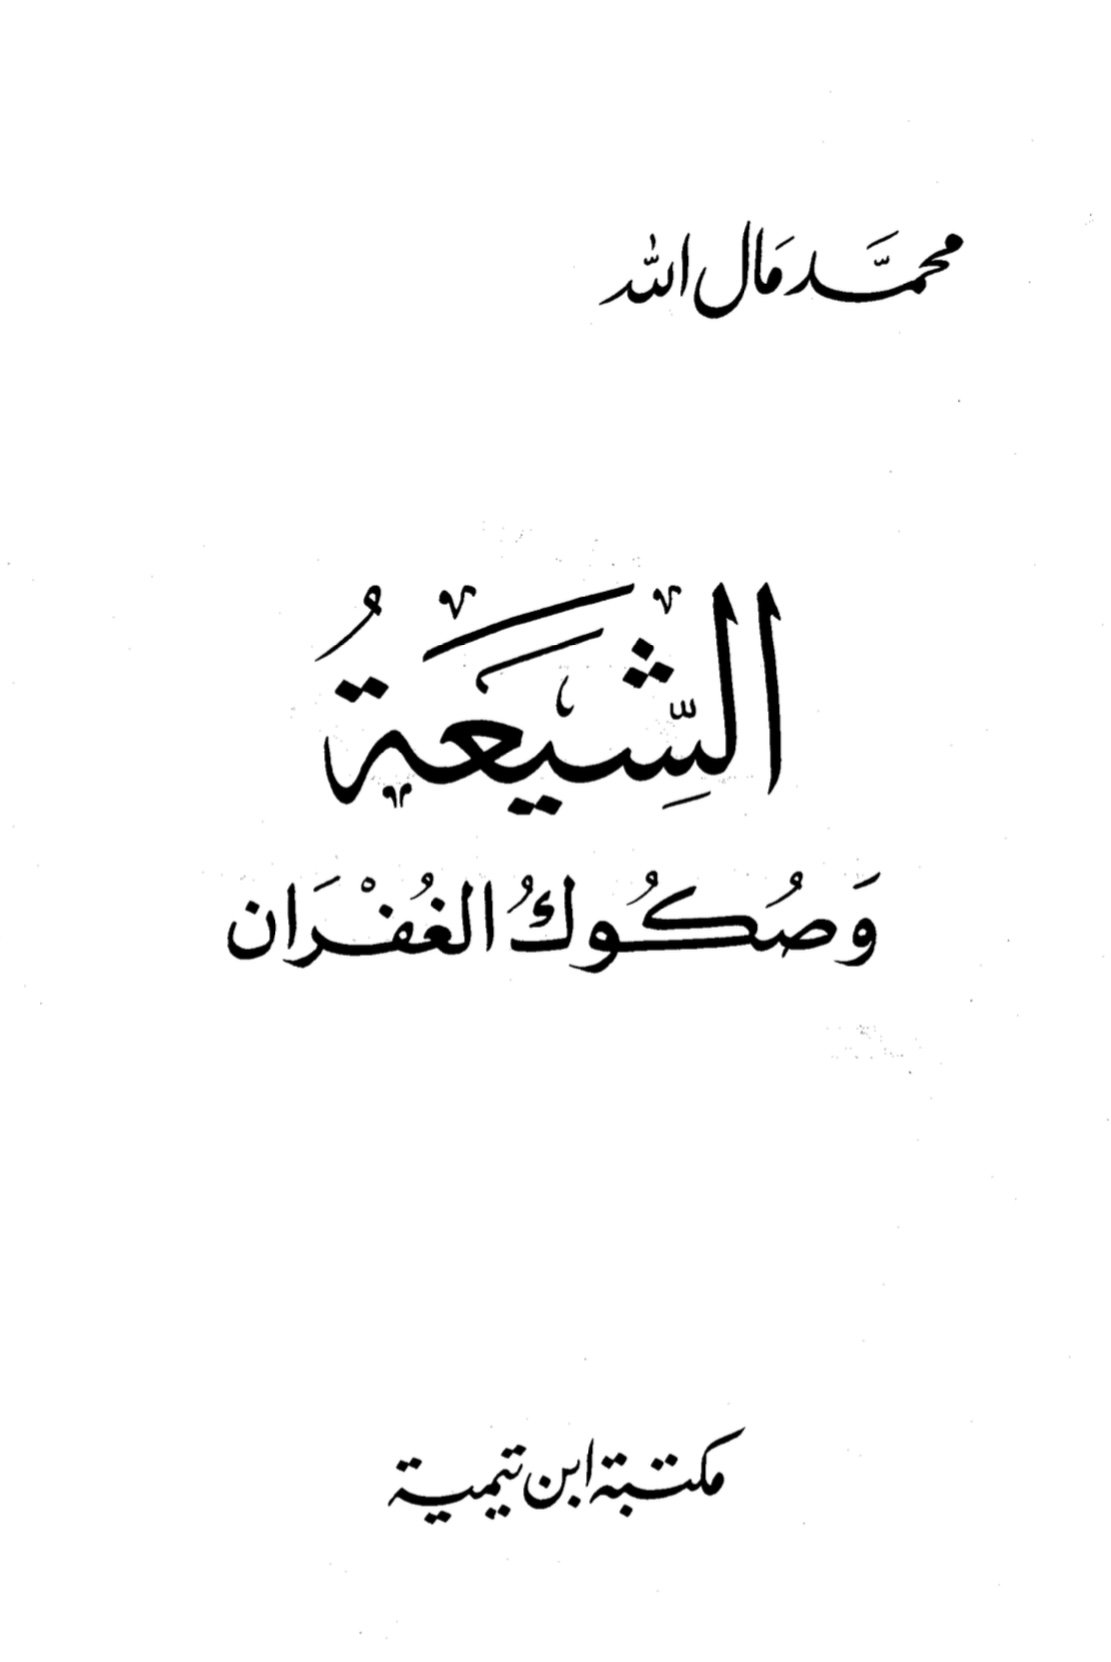 محمَّد مَال الله
الشِّيعَةُ
وَصُكُوكُ الغُفْرَان
مكتبة ابن تيمية